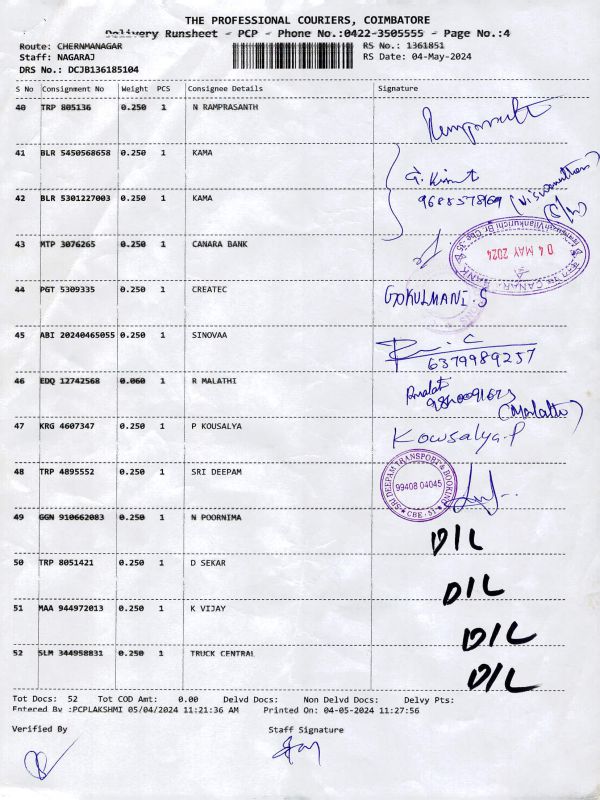 THE PROFESSIONAL COURIERS, COIMBATORE
Delivery Runsheet - PCP - Phone No.:0422-3505555 - Page No.:4
Route: CHERNMANAGAR RS No.: 1361851
Staff: NAGARAJ RS Date: 04-May-2024
DRS No.: DCJB136185104
S No Consignment No Weight PCS Consignee Details Signature
40 TRP 805136 0.250 1 N RAMPRASANTH
41 BLR 5450568658 0.250 1 KAMA
42 BLR 5301227003 0.250 1 KAMA
9688578169
43 MTP 3076265 0.250 1 CANARA BANK
04 MAY 2024
44 PGT 5309335 0.250 1 CREATEC GOKULMANI.S
45 ABI 20240465055 0.250 1 SINOVAA
6379989257
46 EDQ 12742568 0.060 1 R MALATHI
47 KRG 4607347 0.250 1 P KOUSALYA Kowsalya.P
48 TRP 4895552 0.250 1 SRI DEEPAM
SRI DEEPAM TRANSPORT & BOOKING
99408 04045
CBE - 51
49 GGN 910662083 0.250 1 N POORNIMA D/L
50 TRP 8051421 0.250 1 D SEKAR D/L
51 MAA 944972013 0.250 1 K VIJAY D/L
52 SLM 344958831 0.250 1 TRUCK CENTRAL D/L
Tot Docs: 52 Tot COD Amt: 0.00 Delvd Docs: Non Delvd Docs: Delvy Pts:
Entered By :PCPLAKSHMI 05/04/2024 11:21:36 AM Printed On: 04-05-2024 11:27:56
Verified By Staff Signature